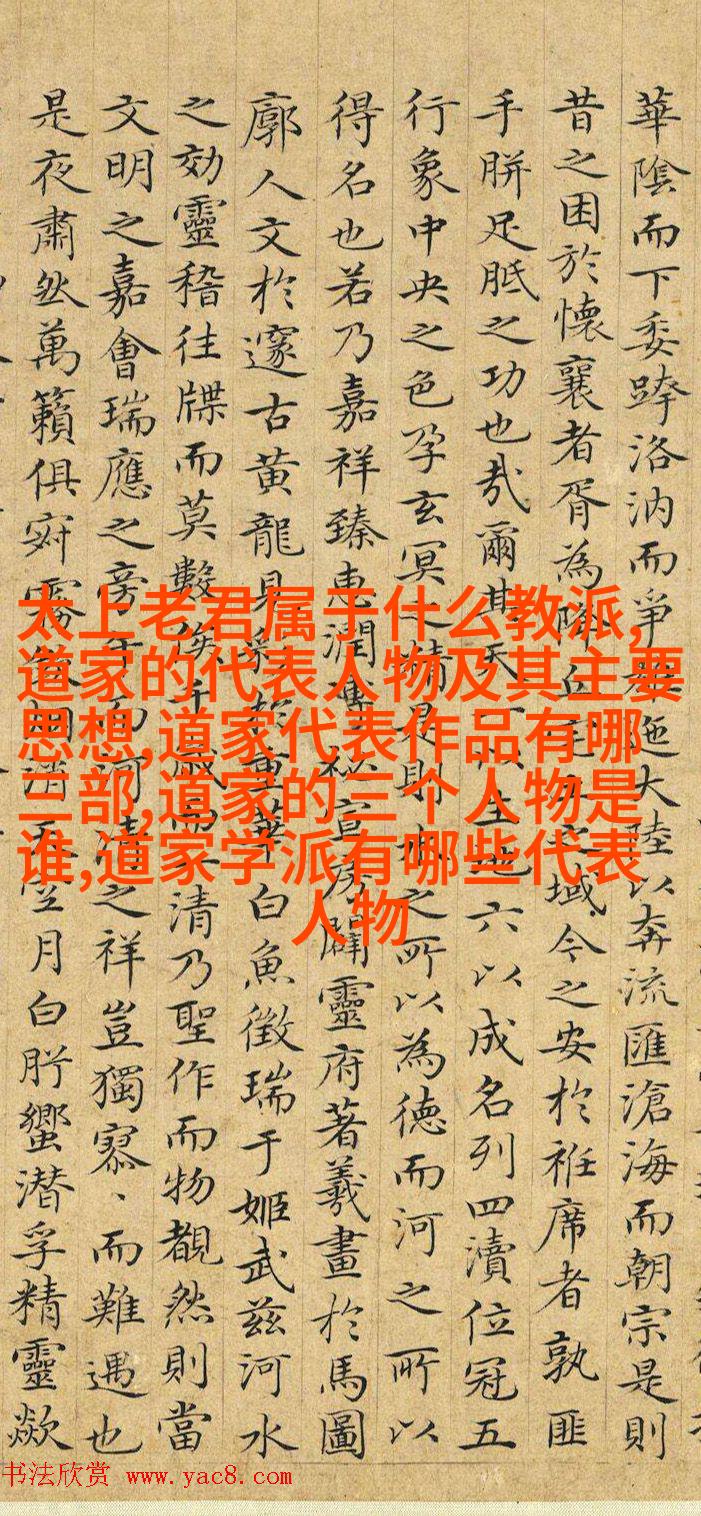 華陰而下委跨洛汭而爭迤大陸以奔流匯滄海而朝宗是則
昔之困於懷襄者胥為降丘宅之域今之安於袵席者孰匪
手胼足胝之功也哉爾其天一以生地六以成名列四瀆位冠五
行象中央之色孕玄冥之精是則河之所以為德而河之所以
得名也若乃嘉祥臻惠潤溥秘宣房闢靈府著羲畫於馬圖
廓人文於邃古黃龍見采於重華白魚徵瑞于姬武茲河水
之効靈稽往牒而莫數後千歲而清乃聖作而物覩然則當
文明之嘉會瑞應之旁午而河清之祥豈獨寥丶而難遇也
是夜肅然萬籟俱寂霧斂烟消天空月白肸蠁潛孚精靈歘
太上老君属于什么教派,
道家的代表人物及其主要
思想,道家代表作品有哪
三部,道家的三个人物是
谁,道家学派有哪些代表
人物
书法欣赏 www.yac8.com